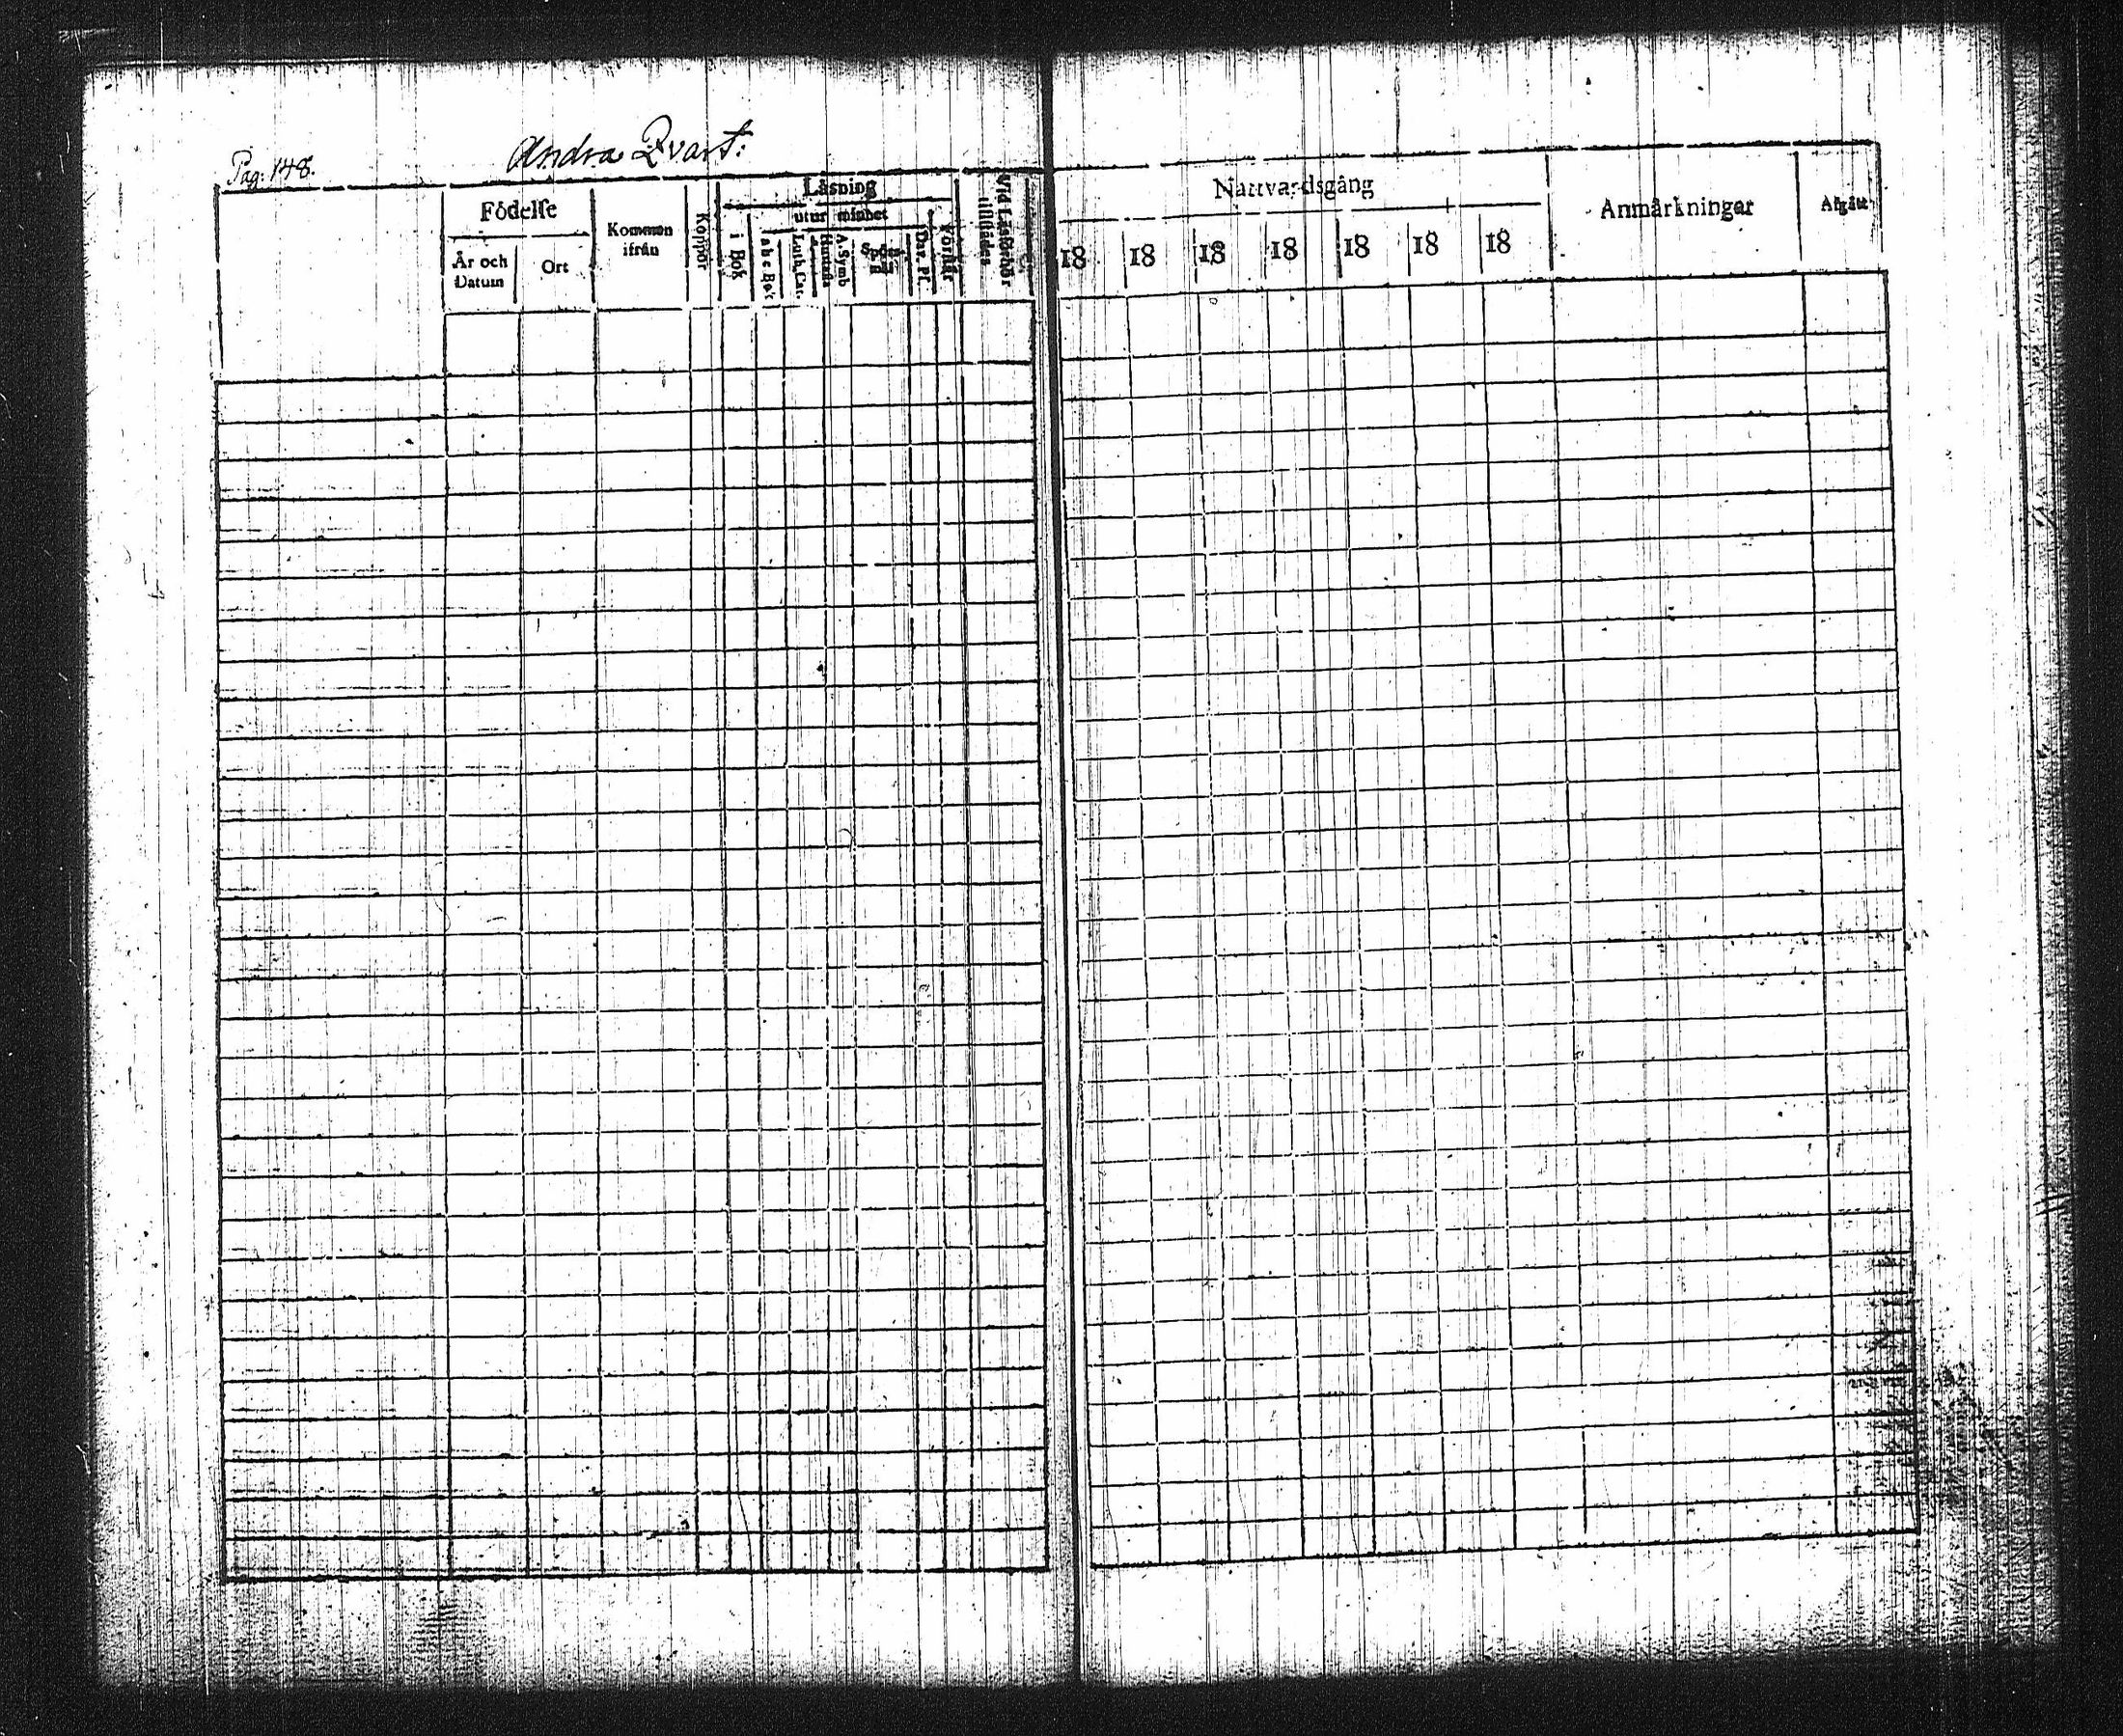 Pag: 148.
Andra Qvart:
Födelse
År och Datum
Ort
Kommen ifrån
Koppor
Läsning
i Bok
utur minnet
Luth. Cat.
Hustafla
A. Symb
Spörsmål
Dav. Ps.
Förhör
Vid Läsförhör tillstädes
Nattvardsgång
18 18 18 18 18 18 18
Anmärkningar
Afgått